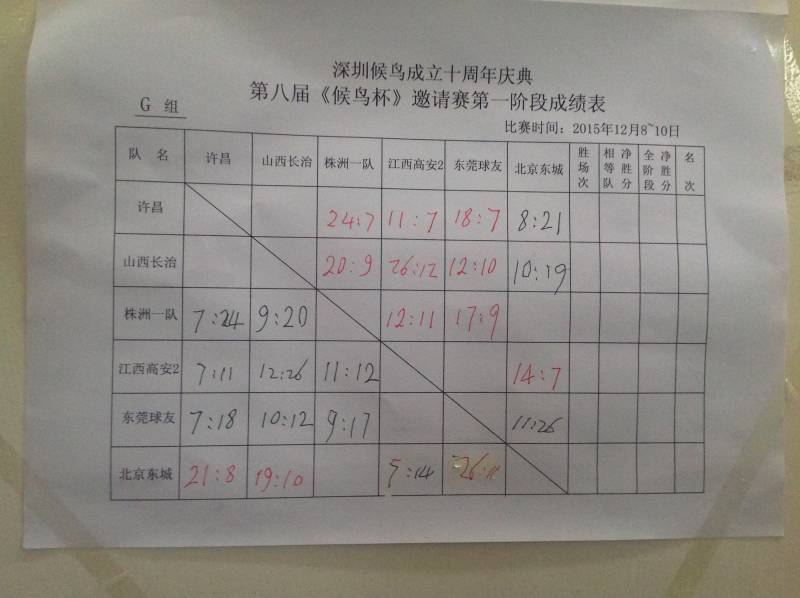 深圳候鸟成立十周年庆典
第八届《候鸟杯》邀请赛第一阶段成绩表
G 组
比赛时间：2015年12月8~10日
队 名 许昌 山西长治 株洲一队 江西高安2 东莞球友 北京东城 胜场次 相等队净胜分 全阶段净胜分 名次
许昌 24:7 11:7 18:7 8:21
山西长治 20:9 26:12 12:10 10:19
株洲一队 7:24 9:20 12:11 17:9
江西高安2 7:11 12:26 11:12 14:7
东莞球友 7:18 10:12 9:17 11:26
北京东城 21:8 19:10 :14 26:11